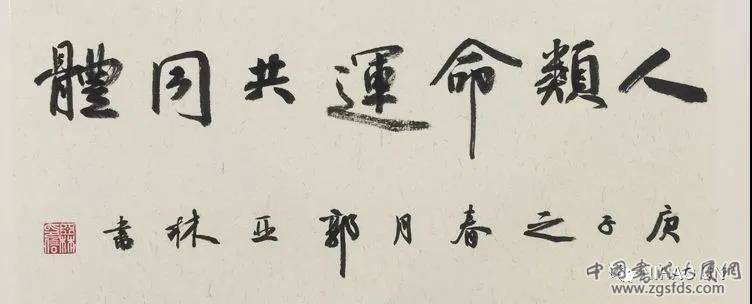 人類命運共同體
庚子之春月郭亚林書
www.zgsfds.com